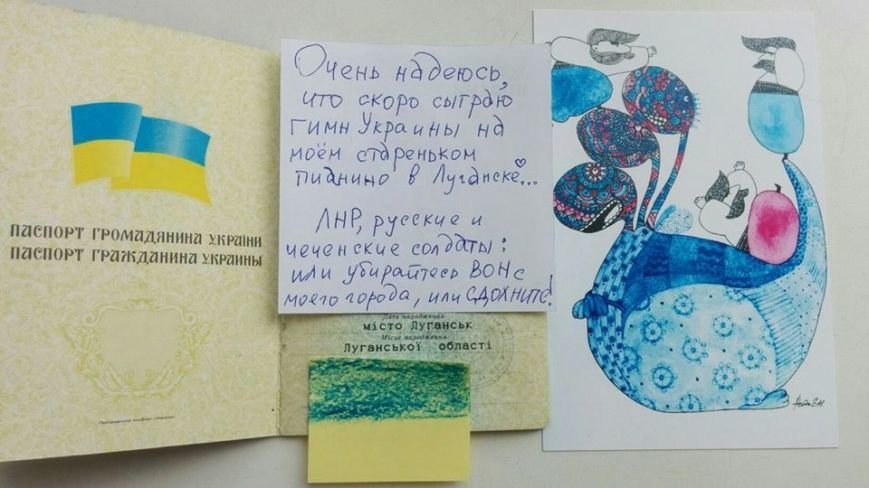 ПАСПОРТ ГРОМАДЯНИНА УКРАЇНИ
ПАСПОРТ ГРАЖДАНИНА УКРАИНЫ
Очень надеюсь,
что скоро сыграю
гимн Украины на
моём стареньком
пианино в Луганске...
ЛНР, русские и
чеченские солдаты:
или убирайтесь ВОН с
моего города, или СДОХНИТЕ!
Дата народження
місто Луганськ
Місце народження
Луганської області